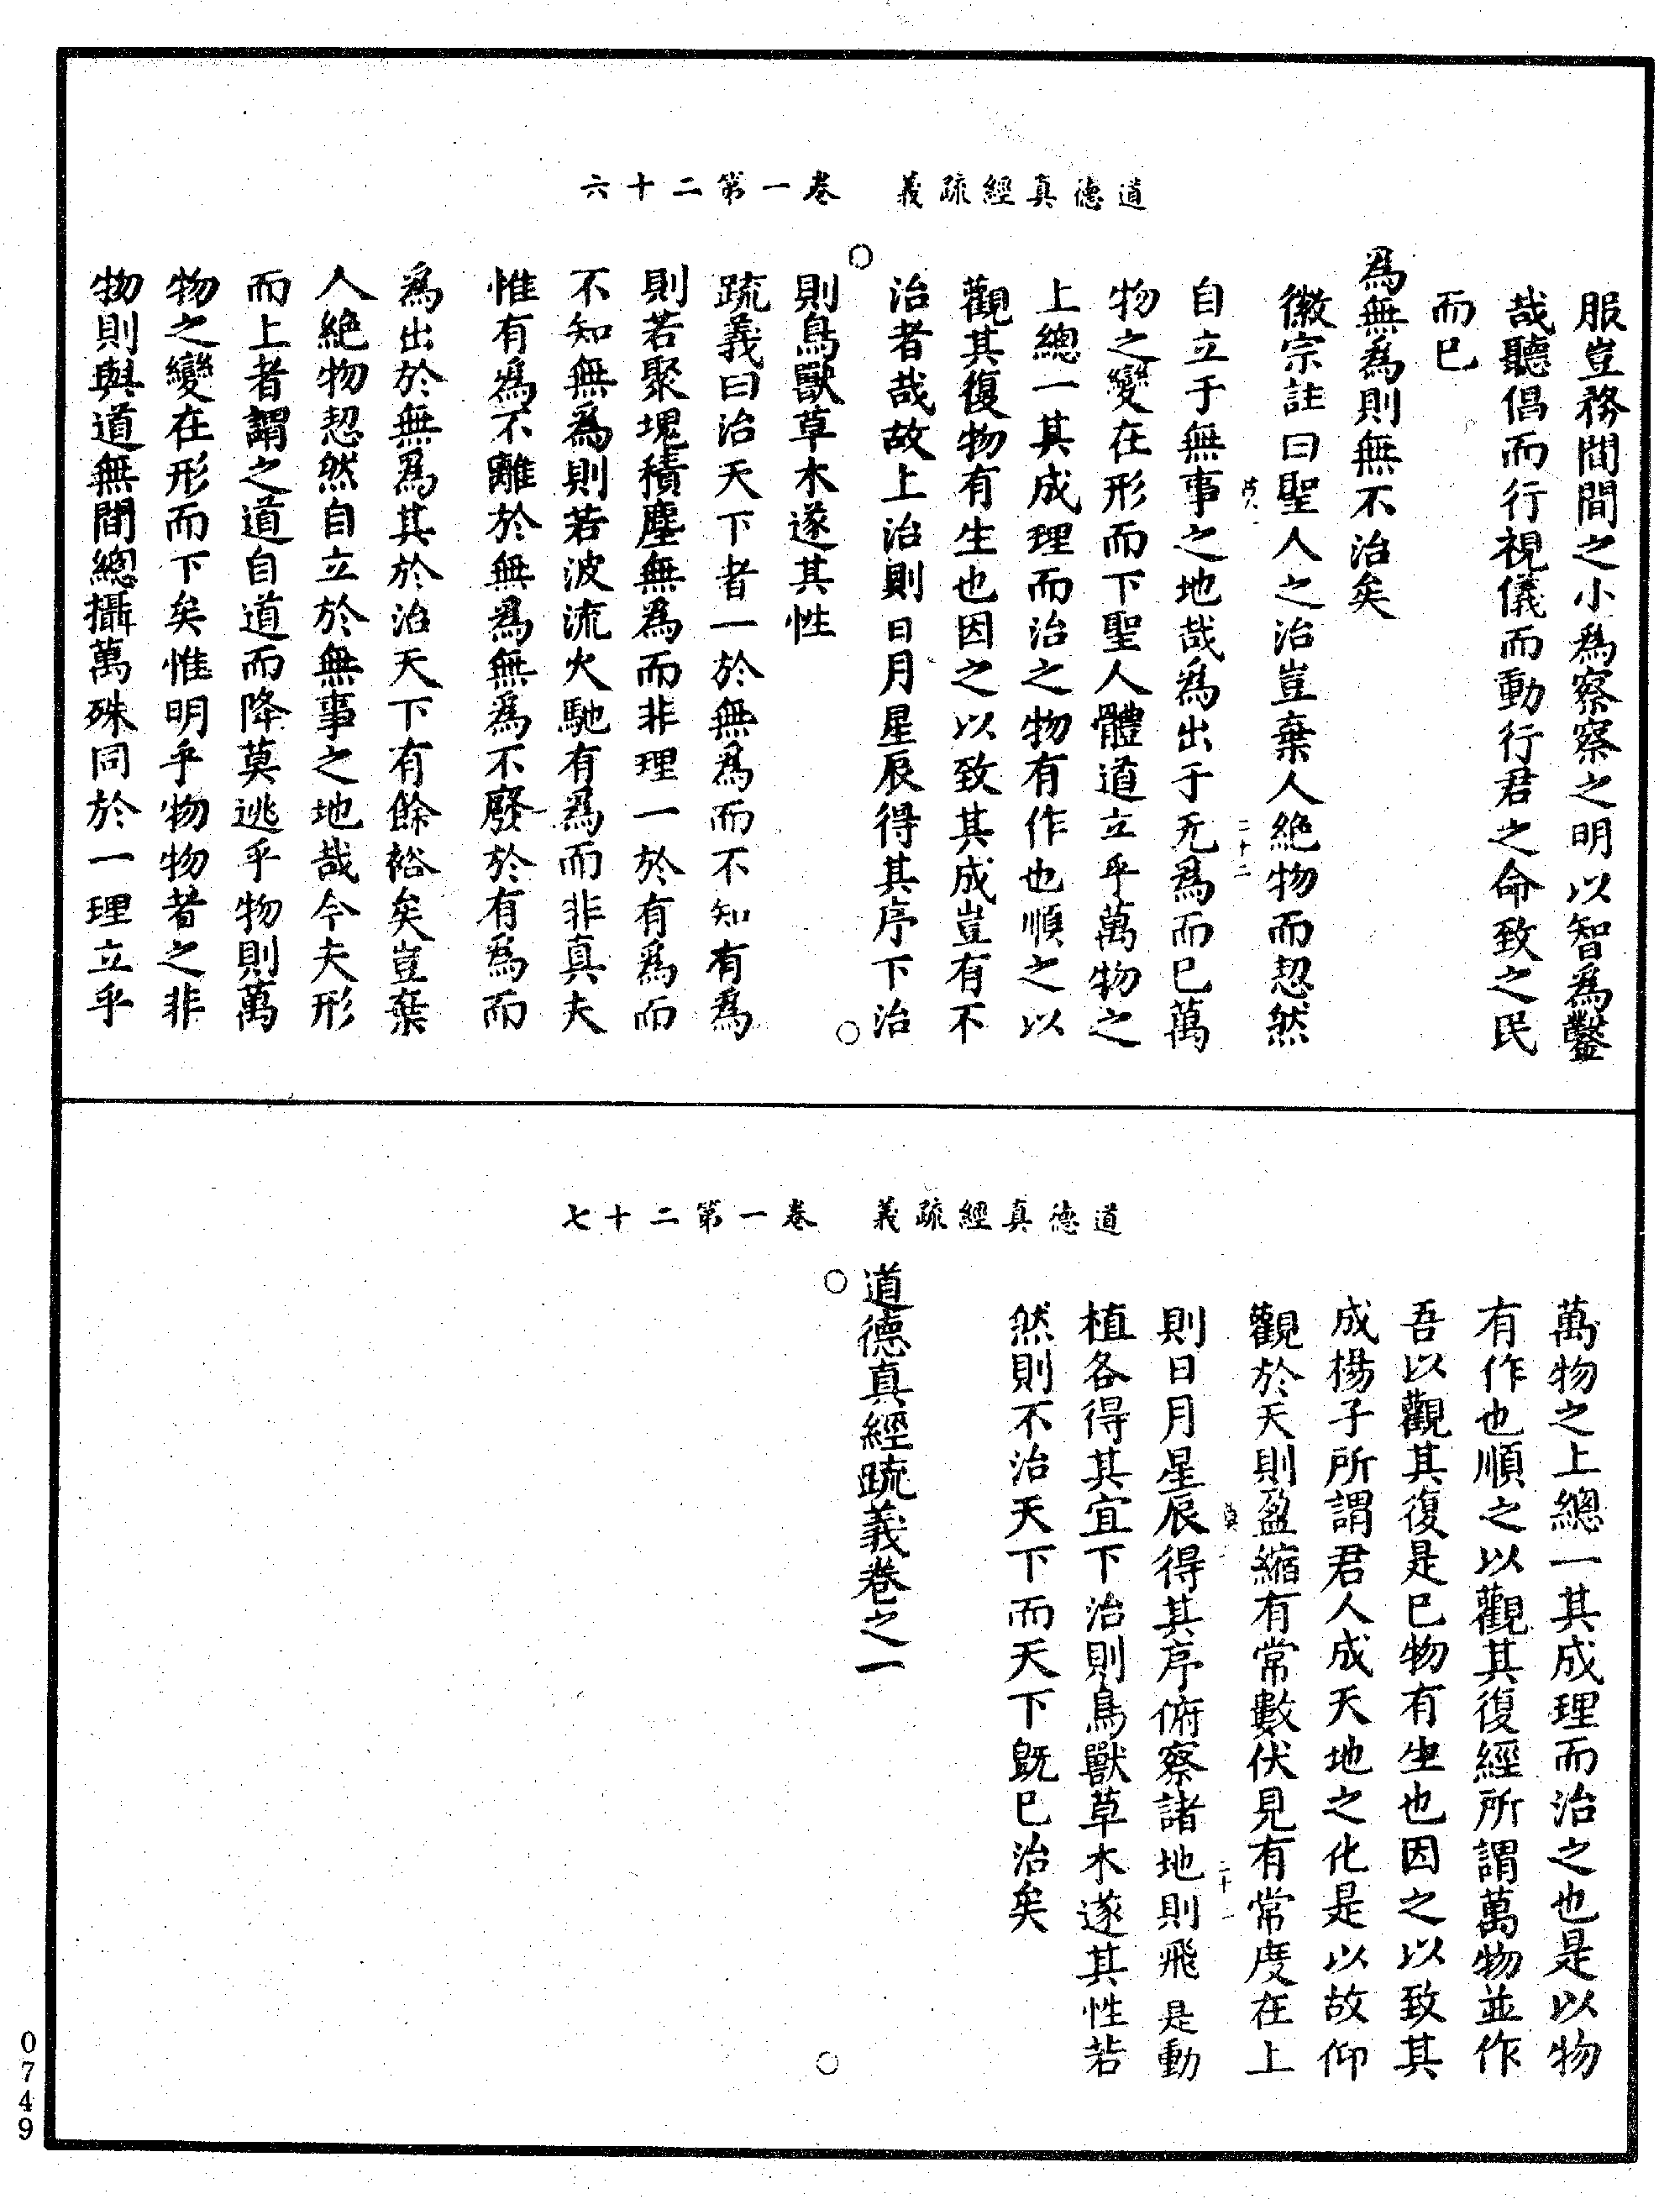 道德真經疏義　卷一第二十六
服豈務閒閒之小爲察察之明以智爲鑿
哉聽倡而行視儀而動行君之命致之民
而已
爲無爲則無不治矣
徽宗註曰聖人之治豈棄人絶物而恝然
自立于無事之地哉爲出于无爲而已萬
物之變在形而下聖人體道立乎萬物之
上總一其成理而治之物有作也順之以
觀其復物有生也因之以致其成豈有不
治者哉故上治則日月星辰得其序下治
則鳥獸草木遂其性
疏義曰治天下者一於無爲而不知有爲
則若聚塊積塵無爲而非理一於有爲而
不知無爲則若波流火馳有爲而非真夫
惟有爲不離於無爲無爲不廢於有爲而
爲出於無爲其於治天下有餘裕矣豈棄
人絶物恝然自立於無事之地哉今夫形
而上者謂之道自道而降莫逃乎物則萬
物之變在形而下矣惟明乎物物者之非
物則與道無間總攝萬殊同於一理立乎
二十二
道德真經疏義　卷一第二十七
萬物之上總一其成理而治之也是以物
有作也順之以觀其復經所謂萬物並作
吾以觀其復是已物有生也因之以致其
成楊子所謂君人成天地之化是以故仰
觀於天則盈縮有常數伏見有常度在上
則日月星辰得其序俯察諸地則飛是動
植各得其宜下治則鳥獸草木遂其性若
然則不治天下而天下旣已治矣
道德真經疏義卷之一
0749